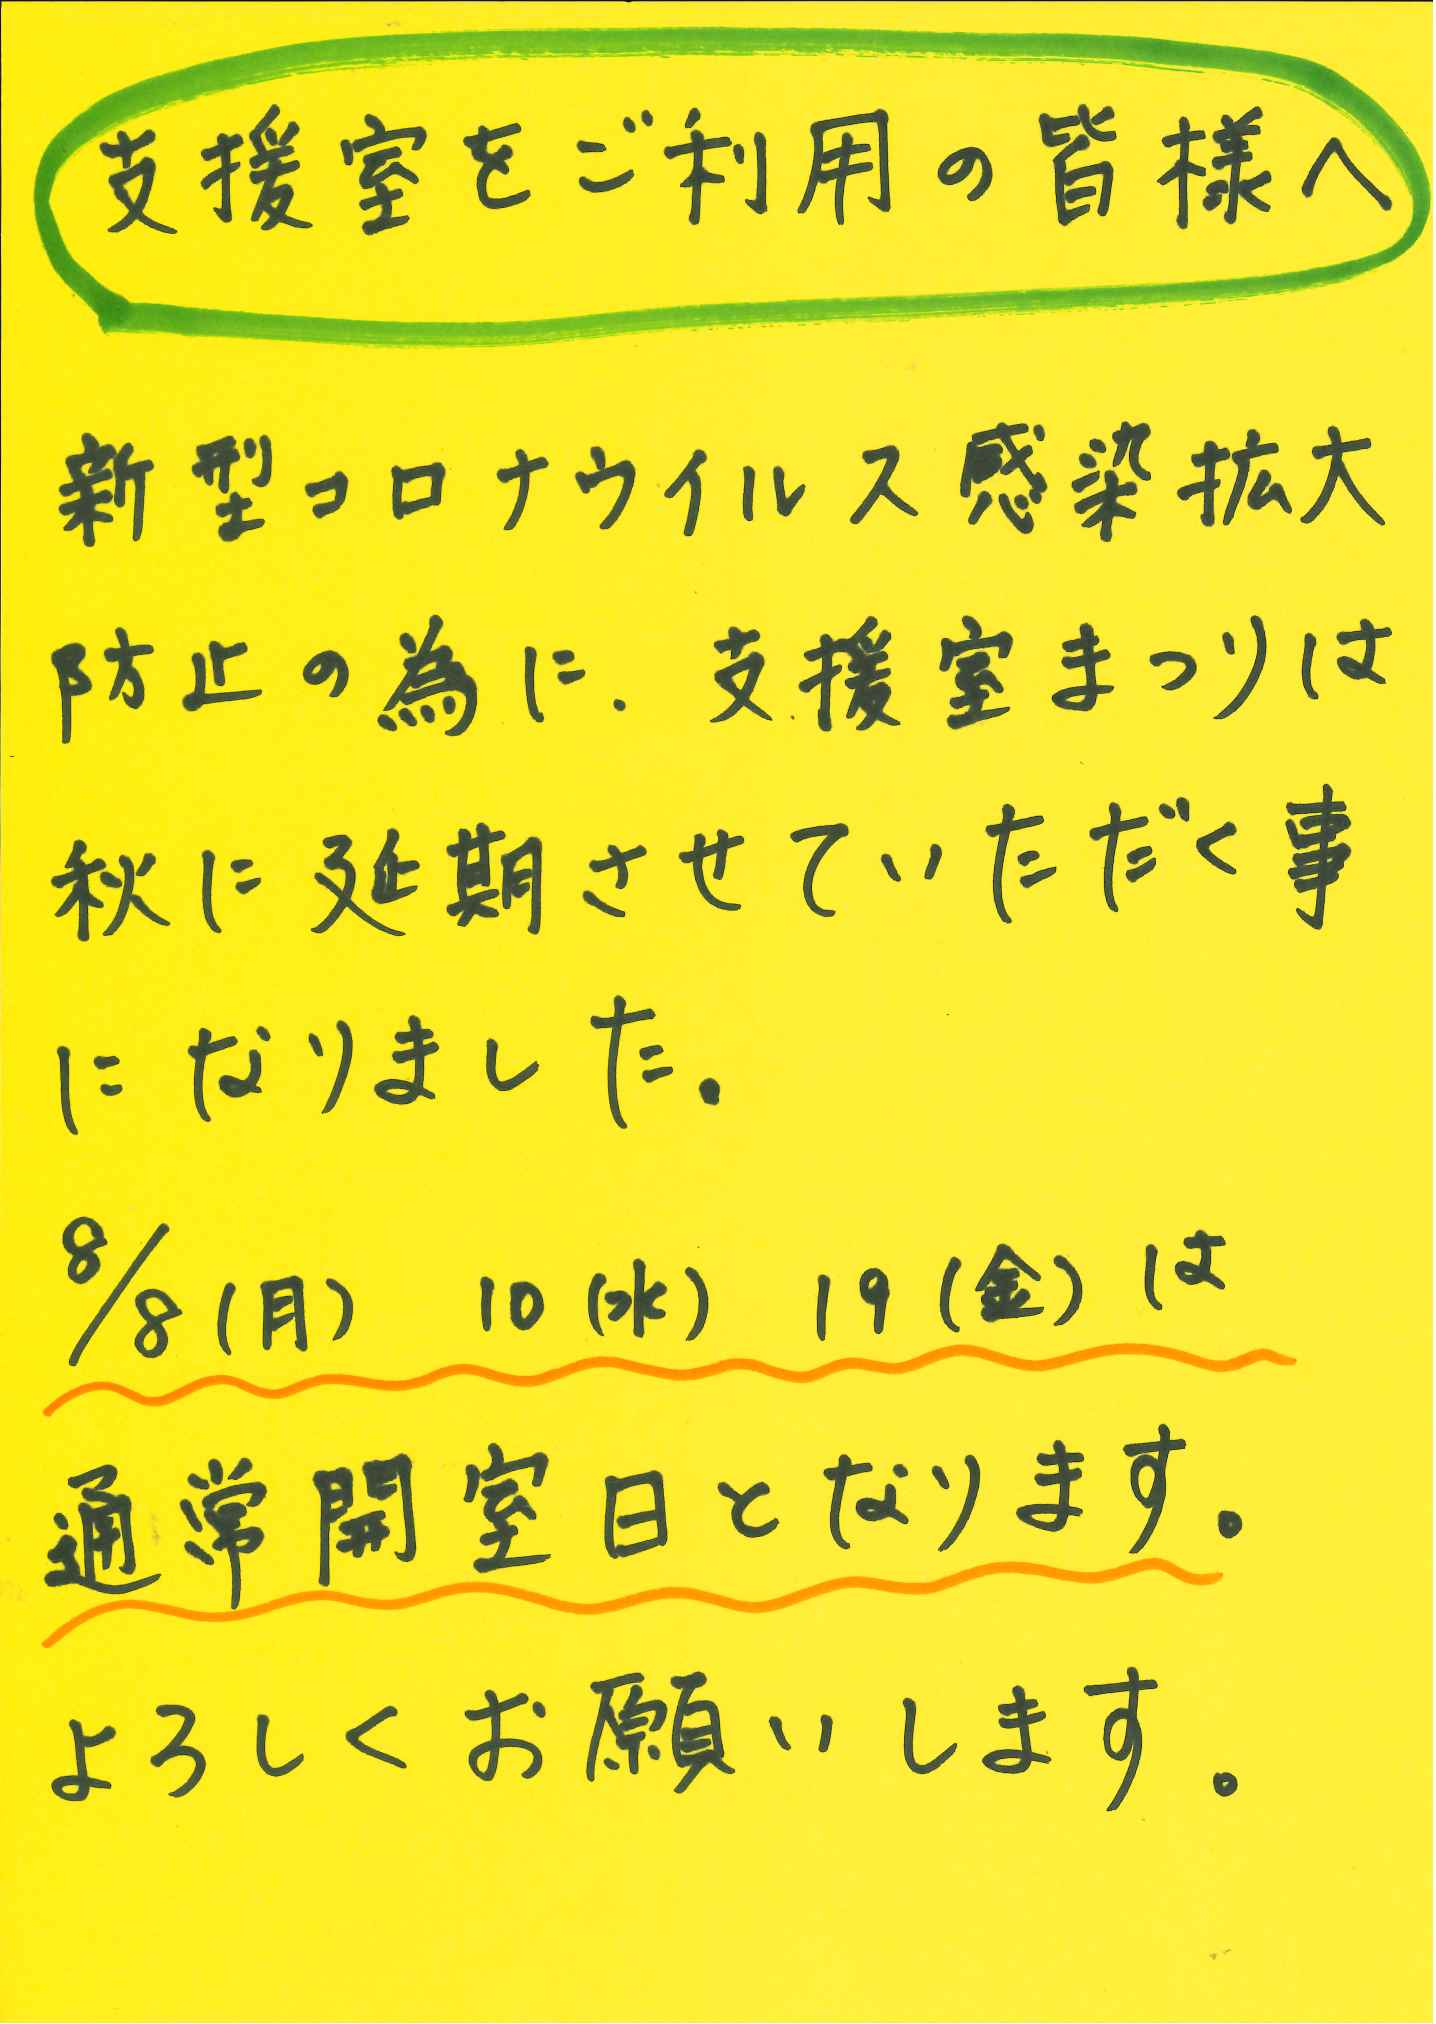 支援室をご利用の皆様へ
新型コロナウイルス感染拡大
防止の為に、支援室まつりは
秋に延期させていただく事
になりました。
8/8(月) 10(水) 19(金)は
通常開室日となります。
よろしくお願いします。